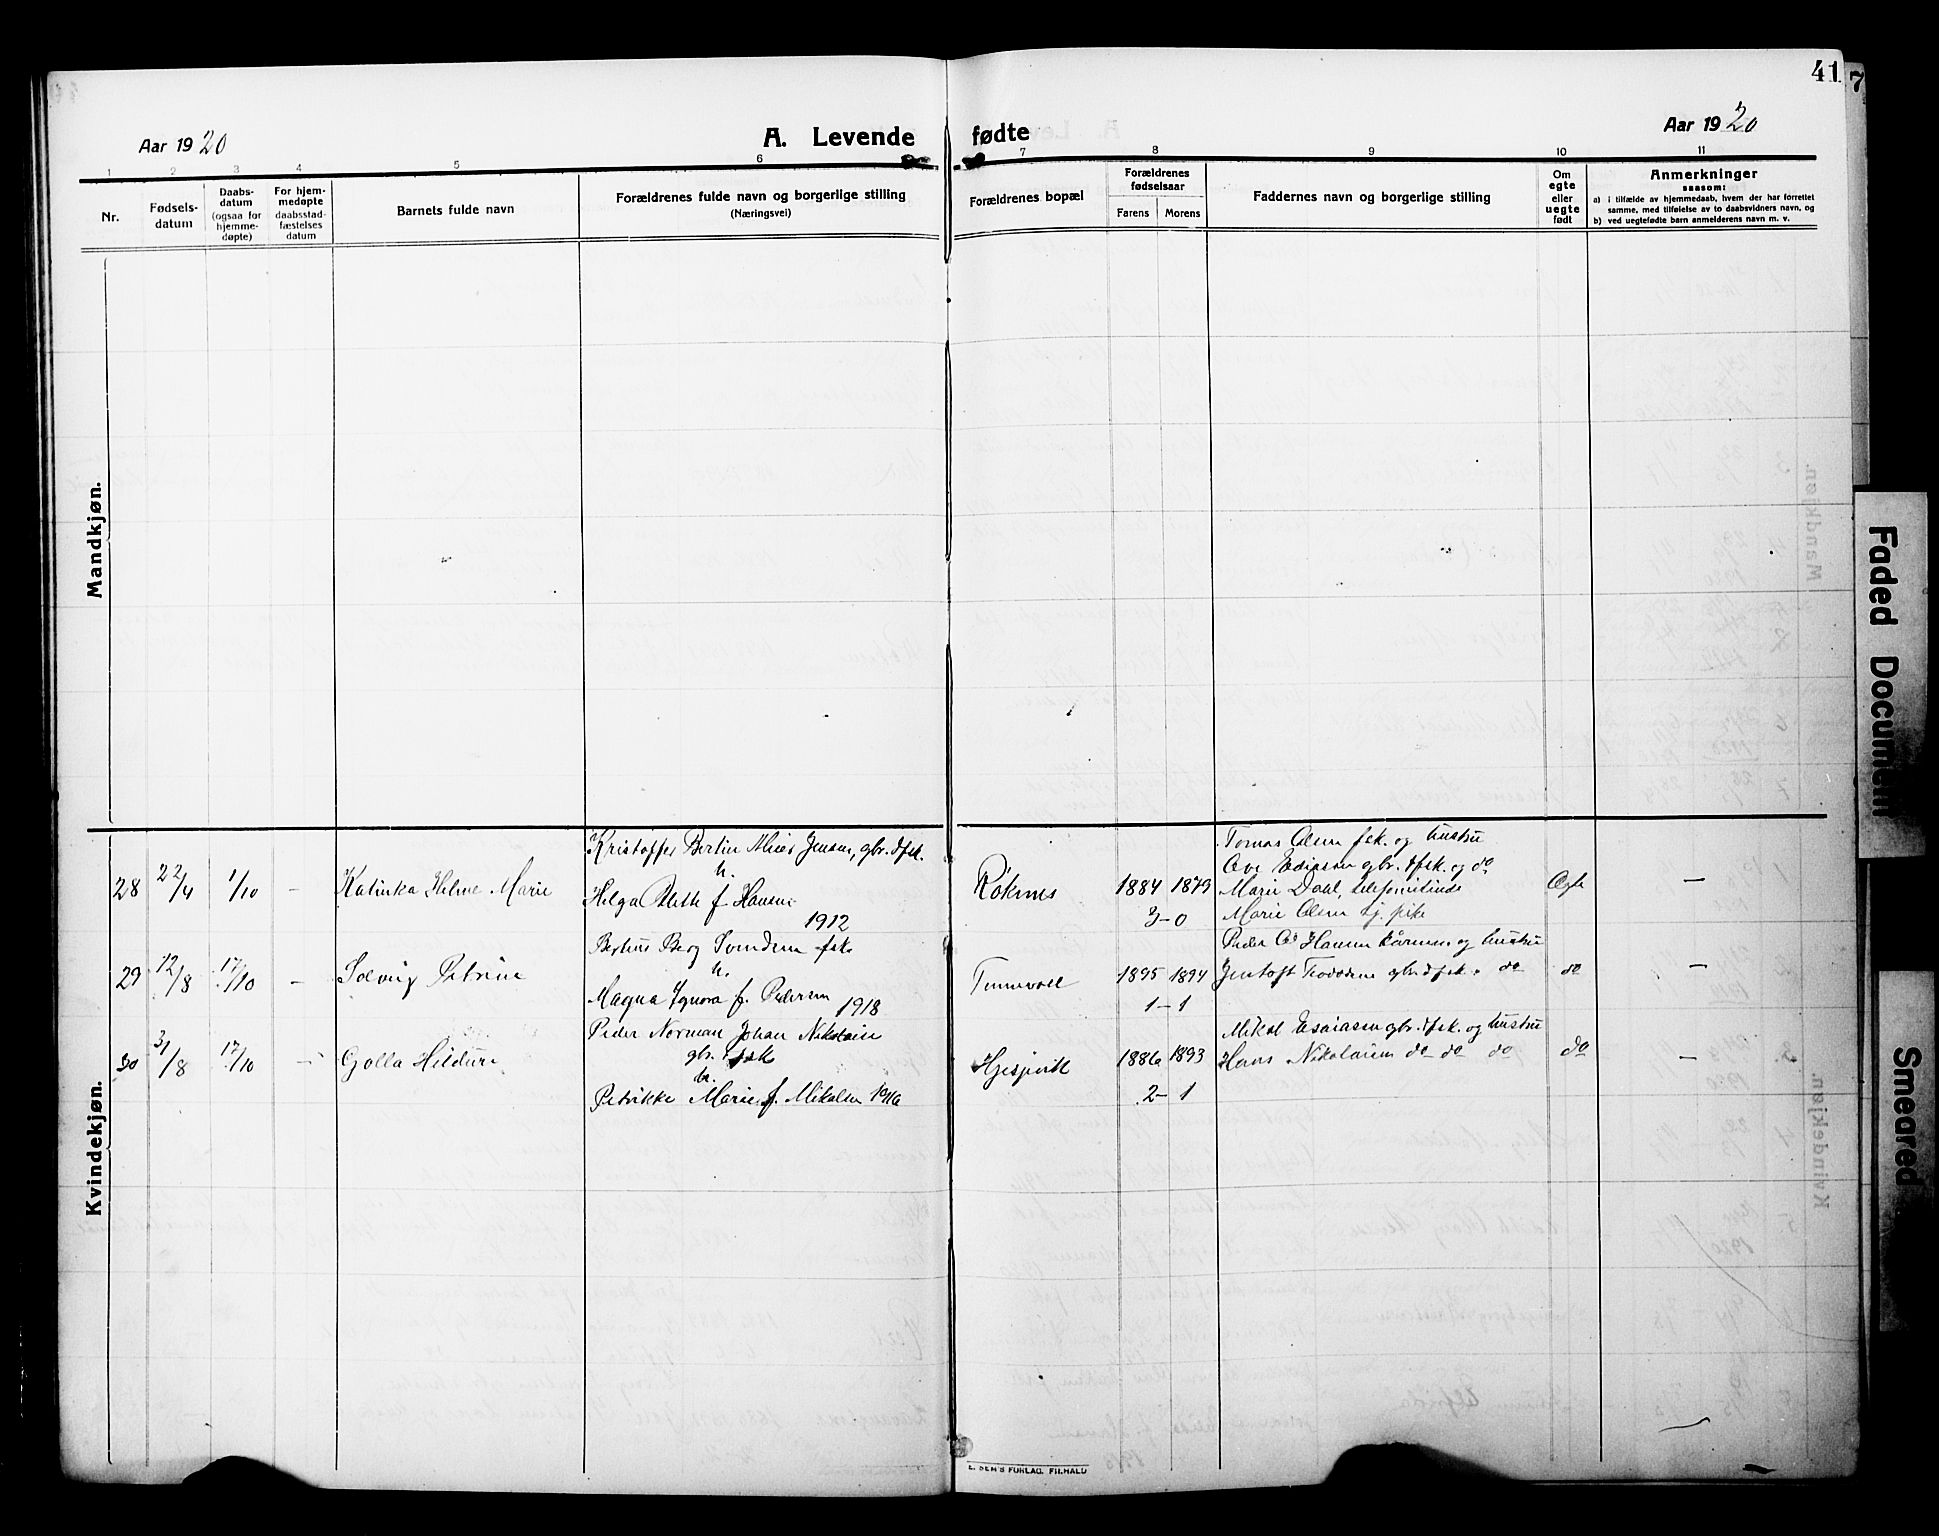 41
7
Aar 1920
A. Levende fødte
Aar 1920
1 2 3 4 5 6 7 8 9 10 11
Nr.
Fødsels-
datum
Daabs-
datum
(ogsaa for
hjemme-
døpte)
For hjem-
medøpte
daabsstad-
fæstelses
datum
Barnets fulde navn
Forældrenes fulde navn og borgerlige stilling
(Næringsvei)
Forældrenes bopæl
Forældrenes
fødselsaar
Farens Morens
Faddernes navn og borgerlige stilling
Om
egte
eller
uegte
født
Anmerkninger
saasom:
a) i tilfælde av hjemmedaab, hvem der har forrettet
samme, med tilføielse av to daabsvidners navn, og
b) ved uegtefødte barn anmelderens navn m. v.
Mandkjøn.
Kvindekjøn.
28 22/4 1/10 – Katinka Helene Marie
Kristoffer Bertin Jensen, gbr. & fsk.
h.
Helga Mette f. Hansen
1912
1884 18
3–0
Tomas Olsen fsk. og hustru
Ove Esaiassen gbr. & fsk. og do
Marie Dahl, telefonistinde
Marie Olsen tj. pike
Ægte –
29 12/8 17/10 – Solveig Petrine
Berg fsk.
h.
Magna f. Pedersen
1918
1895 1894
1–1
Peder Hansen og hustru
gbr. & fsk. do
do –
30 31/8 17/10 – Golla
Peder Norman Johan
gbr. & fsk
h.
Petrikke Marie f. Mikalsen 1916
Hjespvik
1886 1893
2–1
Mikal Esaiassen gbr. & fsk. og hustru
Hans Nikolaisen do do do
do –
E. SEM'S FORLAG. FR.HALD
Faded Document
Smeared